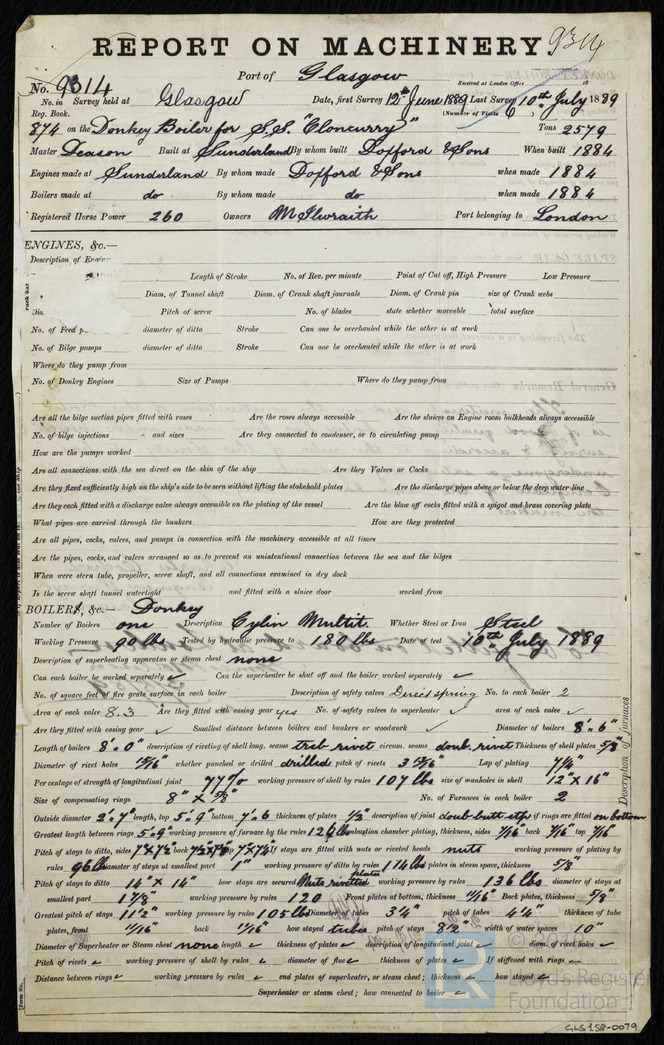 REPORT ON MACHINERY. 9314
Port of Glasgow
Received at London Office
No. 9314
No. in Survey held at Glasgow Date, first Survey 12th June 1889 Last Survey 10th July 1889
Reg. Book. (Number of Visits 6)
874 on the Donkey Boiler for S.S. "Cloncurry" Tons 2579
Master Deason Built at Sunderland By whom built Doxford & Sons When built 1884
Engines made at Sunderland By whom made Doxford & Sons when made 1884
Boilers made at do By whom made do when made 1884
Registered Horse Power 260 Owners McIlwraith Port belonging to London
ENGINES, &c.—
Description of Engin
Length of Stroke No. of Rev. per minute Point of Cut off, High Pressure Low Pressure
Diam. of Tunnel shaft Diam. of Crank shaft journals Diam. of Crank pin size of Crank webs
Dia. Pitch of screw No. of blades state whether moveable total surface
No. of Feed p diameter of ditto Stroke Can one be overhauled while the other is at work
No. of Bilge pumps diameter of ditto Stroke Can one be overhauled while the other is at work
Where do they pump from
No. of Donkey Engines Size of Pumps Where do they pump from
Are all the bilge suction pipes fitted with roses Are the roses always accessible Are the sluices on Engine room bulkheads always accessible
No. of bilge injections and sizes Are they connected to condenser, or to circulating pump
How are the pumps worked
Are all connections with the sea direct on the skin of the ship Are they Valves or Cocks
Are they fixed sufficiently high on the ship's side to be seen without lifting the stokehold plates Are the discharge pipes above or below the deep water line
Are they each fitted with a discharge valve always accessible on the plating of the vessel Are the blow off cocks fitted with a spigot and brass covering plate
What pipes are carried through the bunkers How are they protected
Are all pipes, cocks, valves, and pumps in connection with the machinery accessible at all times
Are the pipes, cocks, and valves arranged so as to prevent an unintentional connection between the sea and the bilges
When were stern tube, propeller, screw shaft, and all connections examined in dry dock
Is the screw shaft tunnel watertight and fitted with a sluice door worked from
BOILERS, &c.— Donkey
Number of Boilers one Description Cylin Multit. Whether Steel or Iron Steel
Working Pressure 90 lbs Tested by hydraulic pressure to 180 lbs Date of test 10th July 1889
Description of superheating apparatus or steam chest none
Can each boiler be worked separately ✓ Can the superheater be shut off and the boiler worked separately ✓
No. of square feet of fire grate surface in each boiler Description of safety valves Direct spring No. to each boiler 2
Area of each valve 8.3 Are they fitted with easing gear yes No. of safety valves to superheater ✓ area of each valve ✓
Are they fitted with easing gear ✓ Smallest distance between boilers and bunkers or woodwork ✓ Diameter of boilers 8'. 6"
Length of boilers 8'. 0" description of riveting of shell long. seams treb rivet circum. seams doub. rivet Thickness of shell plates 5/8"
Diameter of rivet holes 15/16" whether punched or drilled drilled pitch of rivets 3 15/16" Lap of plating 7 1/4"
Percentage of strength of longitudinal joint 77% working pressure of shell by rules 107 lbs size of manholes in shell 12" x 16"
Size of compensating rings 8" x 5/8" No. of Furnaces in each boiler 2
Outside diameter 2'. 7" length, top 5'. 9" bottom 7'. 6 thickness of plates 1/2" description of joint doub-butt stp if rings are fitted on bottom
Greatest length between rings 5'. 9" working pressure of furnace by the rules 126 lbs combustion chamber plating, thickness, sides 7/16 back 7/16" top 7/16"
Pitch of stays to ditto, sides 7 x 7 1/2 back 7 1/2 x 7 1/2 top 7 x 7 1/4 If stays are fitted with nuts or riveted heads nuts working pressure of plating by
rules 96 lbs diameter of stays at smallest part 1" working pressure of ditto by rules 114 lbs plates in steam space, thickness 5/8"
Pitch of stays to ditto 14" x 14" how stays are secured Nuts rivetted plates working pressure by rules 136 lbs diameter of stays at
smallest part 1 7/8" working pressure by rules 120 Front plates at bottom, thickness 11/16" Back plates, thickness 5/8"
Greatest pitch of stays 11 1/2" working pressure by rules 105 lbs Diameter of tubes 3 1/4" pitch of tubes 4 1/4" thickness of tube
plates, front 11/16" back 11/16" how stayed tubes pitch of stays 8 1/2" width of water spaces 10"
Diameter of Superheater or Steam chest none length ✓ thickness of plates ✓ description of longitudinal joint ✓ diam. of rivet holes ✓
Pitch of rivets ✓ working pressure of shell by rules ✓ diameter of flue ✓ thickness of plates ✓ If stiffened with rings ✓
Distance between rings ✓ working pressure by rules ✓ end plates of superheater, or steam chest; thickness ✓ how stayed ✓
Superheater or steam chest; how connected to boiler ✓
Description of Furnaces
Lloyd's Register
Foundation
GLS158-0079